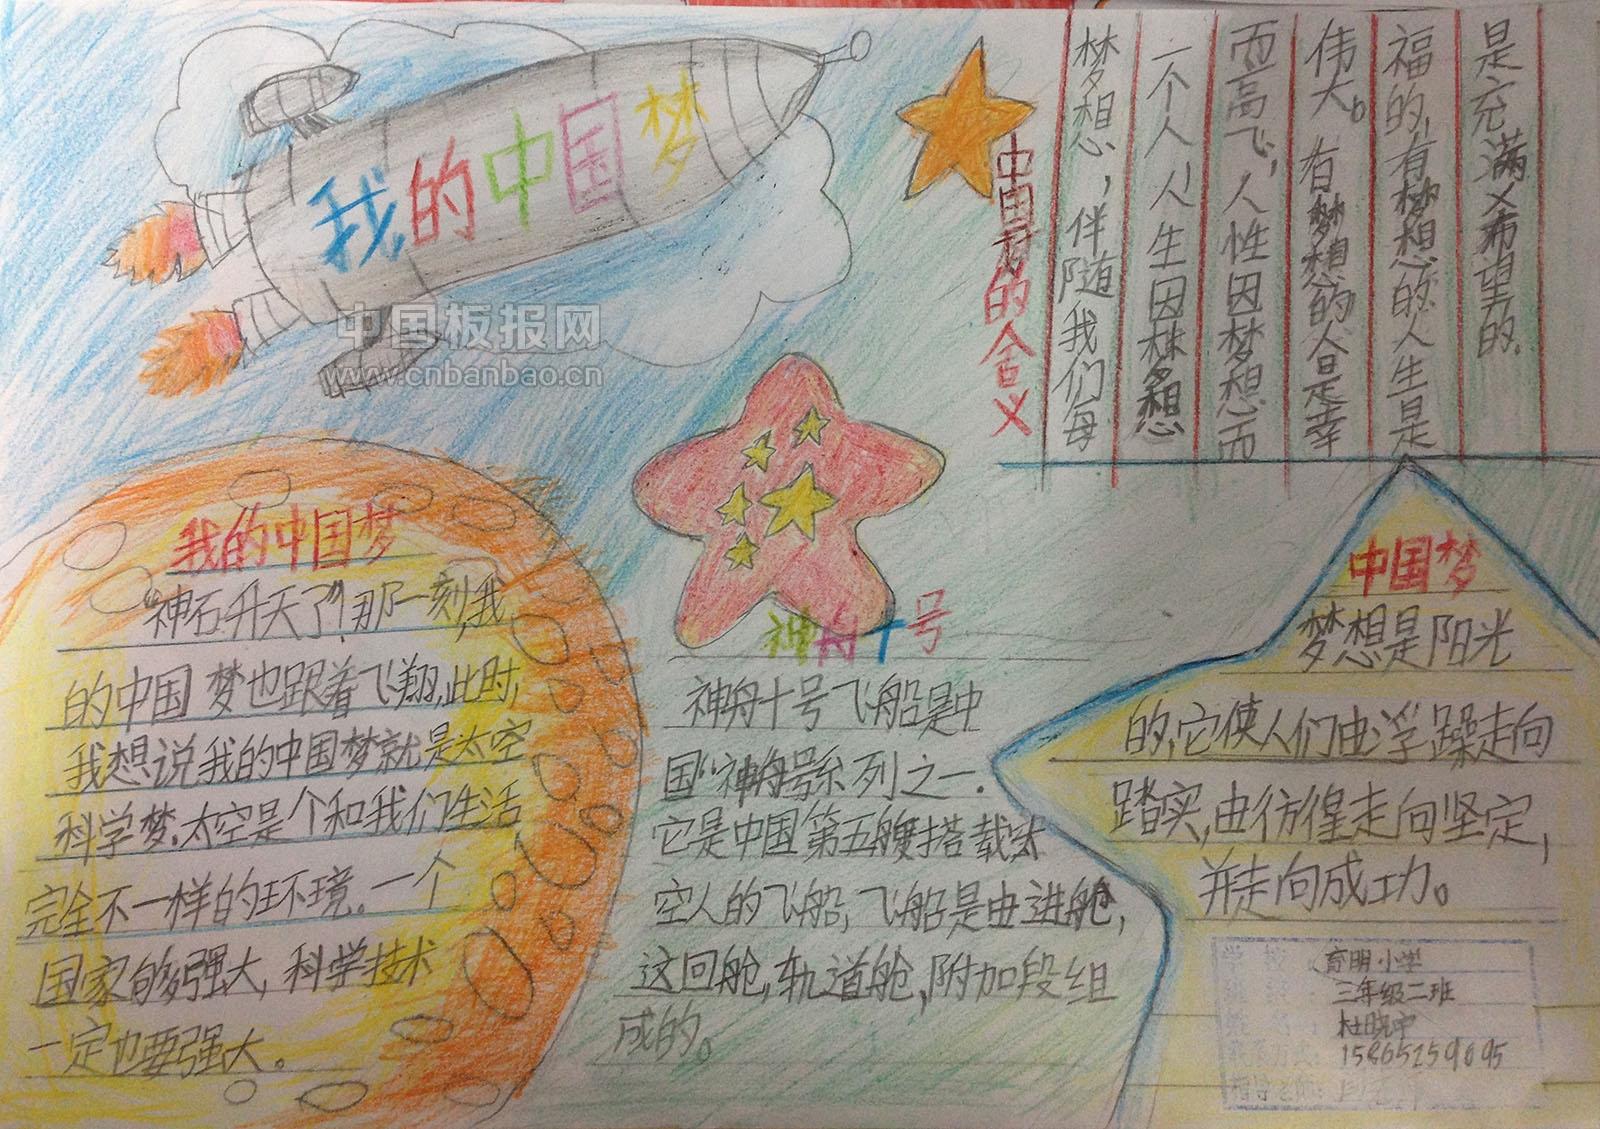 我的中国梦
中国板报网
www.cnbanbao.cn
中国梦的含义
梦想，伴随我们每
一个人人生因梦想
而高飞，人性因梦想而
伟大。有梦想的人是幸
福的，有梦想的人生是
是充满义希望的.
我的中国梦
"神石升天了"那一刻,我
的中国梦也跟着飞翔,此时,
我想说我的中国梦就是太空
科学梦.太空是个和我们生活
完全不一样的环境。一个
国家的够强大,科学技术
一定也要强大。
神舟十号
神舟十号飞船是中
国"神舟号系列之一.
它是中国第五艘搭载太
空人的飞船,飞船是由进舱,
这回舱,轨道舱,附加段组
成的。
中国梦
梦想是阳光
的,它使人们由浮躁走向
踏实,由彷徨走向坚定,
并走向成功。
育明小学
三年级二班
杜晓宇
指导老师: